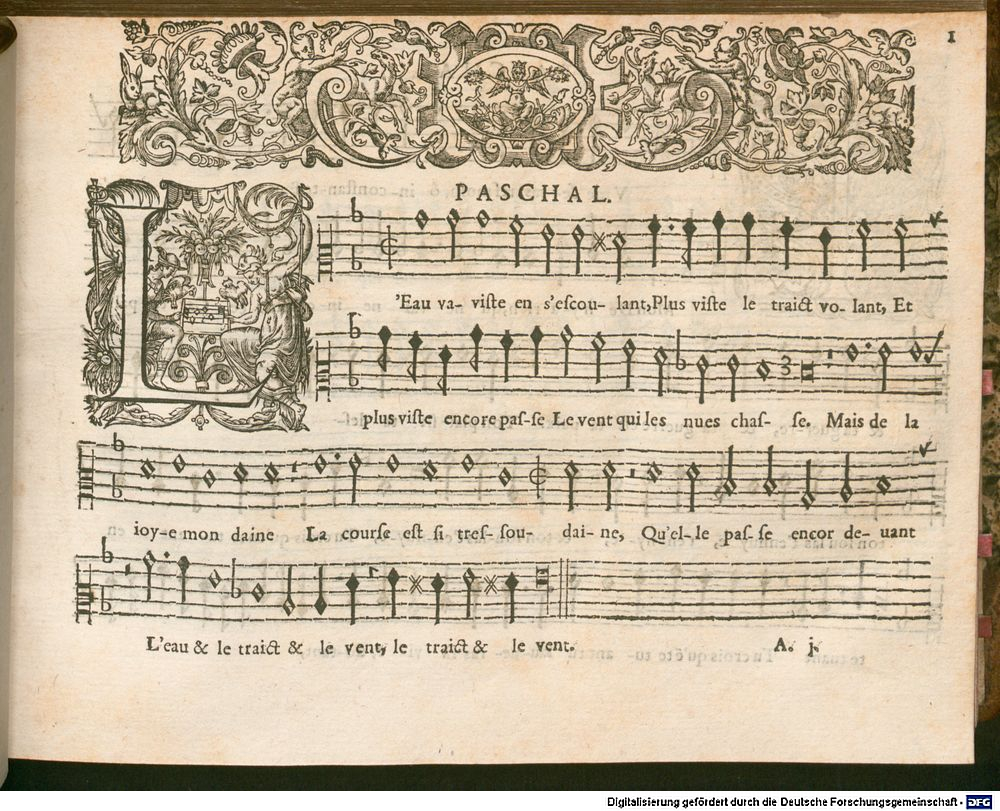 1
PASCHAL.
L'Eau va- viſte en s'eſcou- lant, Plus viſte le traict vo- lant, Et
plus viſte encore paſ-ſe Le vent qui les nues chaſ- ſe. Mais de la
ioy-e mon daine La courſe eſt ſi treſ- ſou- dai- ne, Qu'el- le paſ- ſe encor de- uant
L'eau & le traict & le vent, le traict & le vent.
A. j.
Digitalisierung gefördert durch die Deutsche Forschungsgemeinschaft - DFG